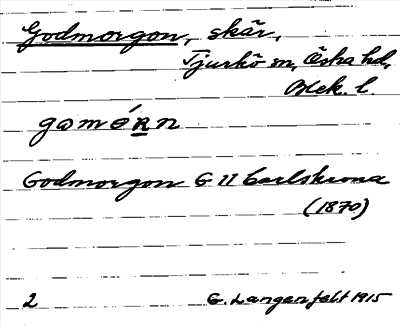 Godmorgon, skär,
Tjurkö sn, Östra hd,
Blek. l.
gɷmǿʀn
Godmorgon G 11 Carlskrona
(1870)
2 G. Langenfelt 1915